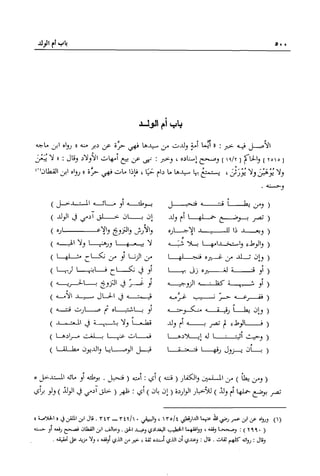 ٥٠٠ باب أم الولد
باب أم الولد
الأصل فيه خبر : « أيما أمة ولدت من سيدها فهي حرة عن دبر منه » رواه ابن ماجه
( ٢٥١٥ ) والحاكم ( ١٩/٢ ) وصحح إسناده ، وخبر : نهى عن بيع أمهات الأولاد وقال : « لا يُبَعْنَ
ولا يُوهَبْنَ ولا يُورَثْنَ ، يستمتع بها سيدها ما دام حيّاً ، فإذا مات فهي حرة » رواه ابن القطان(١)
وحسنه .
( ومن يطأ قنه فتحبل بوطئه أو مائه المستدخل )
( تصر بوضع حملها أم ولد إن بان خلق آدمي في الولد )
( وبعد ذا للسيد الإجاره والأرش والتزويج والإعاره )
( والوطء واستخدامها بلا شبه لا بيعها ورهنها ولا الهبه )
( وإن تلد من غيره فنجلها من الزنا أو من نكاح مثلها )
( أو قنة لغيره زنى بها أو في نكاح فابنها لربها )
( أو شبهة كظنه الزوجيه أو غُرّ في التزويج بالحريه )
( ففرعه حر نسيب غرمه قيمته في الحال سيد الأمه )
( وإن يطأ رقيقة منكوحته أو باشتباه ثم صارت قنته )
( فالوطء لم تصر به أم ولد قطعاً ولا بشبهة في المعتمد )
( وحيث أثبتنا له إيلادها فمات عنها بلغت مرادها )
( بأن يزول رقها فتعتقا قبل الوصايا والديون مطلقا )
( ومن يطأ ) من المسلمين والكفار ( قنه ) أي : أمته ( فتحبل . بوطئه أو مائه المستدخل *
تصر بوضع حملها أم ولد ) ( إن بان ) أي : ظهر ( خلق آدمي في الولد ) ولو برأي
(١) ورواه عن ابن عمر رضي الله عنهما الدارقطني ١٣٥/٤ ، والبيهقي ٣٤٢/١٠ - ٣٤٣ . قال ابن الملقن في « الخلاصة »
( ٢٩٩٠ ) : وصححا وقفه ، ووافقهما الخطيب البغدادي وعبد الحق . وخالف ابن القطان فصحح رفعه أو حسنه
وقال : رواته كلهم ثقات . قال : وعندي أن الذي أسنده ثقة ، خير من الذي أوقفه ، ولا مزيد على تحقيقه .